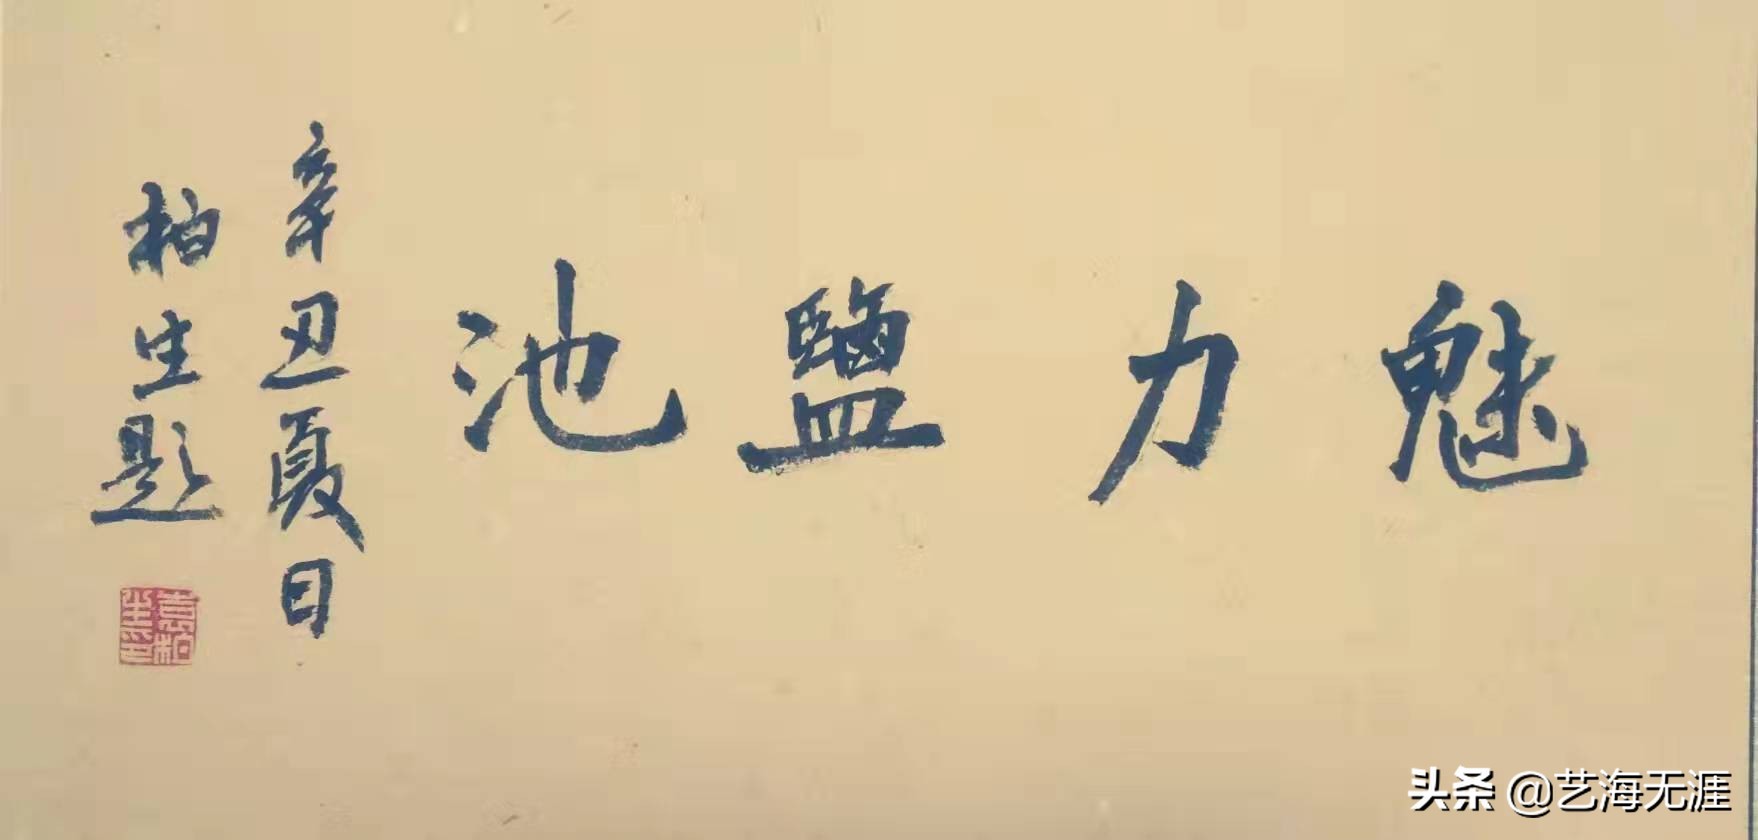 魅力鹽池
辛丑夏日
柏生題
袁柏生印
头条 @艺海无涯